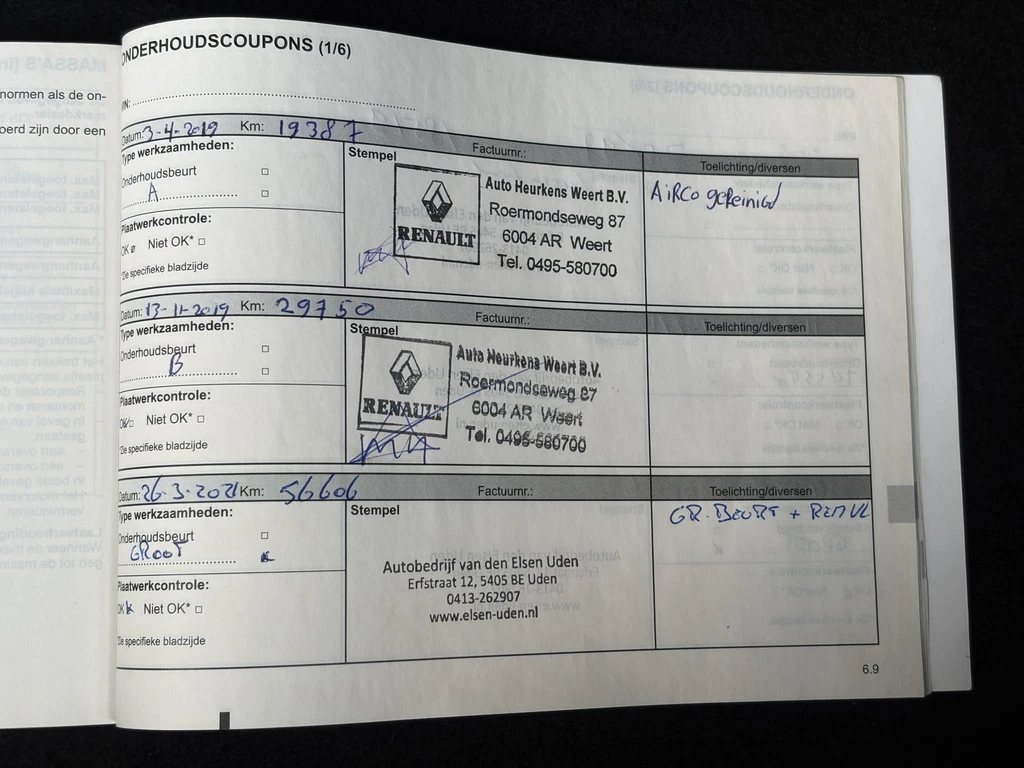 normen als de on-
oerd zijn door een
ONDERHOUDSCOUPONS (1/6)
VIN:
Datum: 3-4-2019 Km: 19387
Factuurnr.:
Toelichting/diversen
Type werkzaamheden:
Stempel
Onderhoudsbeurt
A
Plaatwerkcontrole:
OK Niet OK*
*Zie specifieke bladzijde
RENAULT
Auto Heurkens Weert B.V.
Roermondseweg 87
6004 AR Weert
Tel. 0495-580700
AIRCO gereinigd
Datum: 13-11-2019 Km: 29750
Factuurnr.:
Toelichting/diversen
Type werkzaamheden:
Stempel
Onderhoudsbeurt
B
Plaatwerkcontrole:
OK Niet OK*
*Zie specifieke bladzijde
RENAULT
Auto Heurkens Weert B.V.
Roermondseweg 87
6004 AR Weert
Tel. 0495-580700
Datum: 26-3-2021 Km: 56606
Factuurnr.:
Toelichting/diversen
Type werkzaamheden:
Stempel
Onderhoudsbeurt
GROOT
Plaatwerkcontrole:
OK Niet OK*
*Zie specifieke bladzijde
Autobedrijf van den Elsen Uden
Erfstraat 12, 5405 BE Uden
0413-262907
www.elsen-uden.nl
GR. BEURT + REMVL
6.9